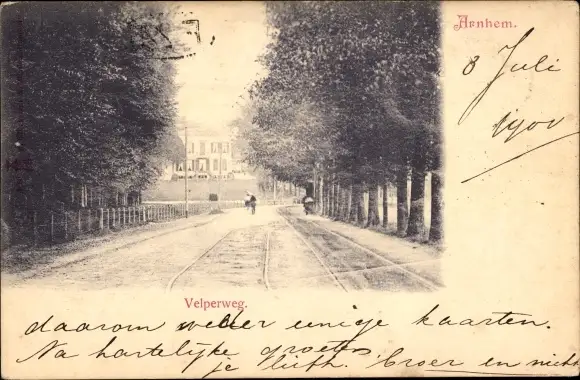 Arnhem.
8 Juli
Velperweg.
daarom weder eenige kaarten.
Na hartelijke groeten
je liefh. Broer en